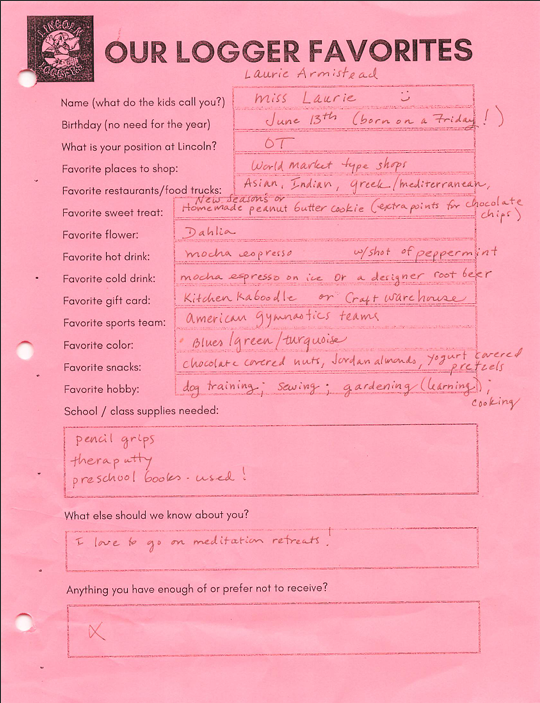 LINCOLN
LOGGERS
OUR LOGGER FAVORITES
Laurie Armistead
Name (what do the kids call you?) Miss Laurie
Birthday (no need for the year) June 13th (born on a Friday!)
What is your position at Lincoln? OT
Favorite places to shop: World market type shops
Favorite restaurants/food trucks: Asian, Indian, greek/mediterranean,
New Seasons or
Favorite sweet treat: Homemade peanut butter cookie (extra points for chocolate
chips)
Favorite flower: Dahlia
Favorite hot drink: mocha espresso w/shot of peppermint
Favorite cold drink: mocha espresso on ice or a designer root beer
Favorite gift card: Kitchen Kaboodle or Craft Warehouse
Favorite sports team: American Gymnastics teams
Favorite color: Blues/green/turquoise
Favorite snacks: chocolate covered nuts, Jordan almonds, yogurt covered
pretzels
Favorite hobby: dog training; sewing; gardening (learning);
cooking
School / class supplies needed:
pencil grips
theraputty
preschool books - used!
What else should we know about you?
I love to go on meditation retreats!
Anything you have enough of or prefer not to receive?
X